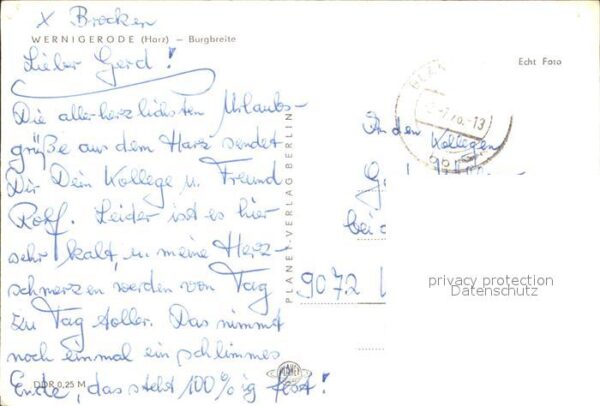 x Brocken
WERNIGERODE (Harz) – Burgbreite
Lieber Gerd!
Die aller herzlichsten Urlaubs-
grüße aus dem Harz sendet
Dir Dein Kollege u. Freund
Rolf. Leider ist es hier
sehr kalt, u. meine Herz-
schmerzen werden von Tag
zu Tag toller. Das nimmt
noch einmal ein schlimmes
Ende, das steht 100%ig fest!
DDR 0,25 M
PLANET
PLANET-VERLAG BERLIN
Echt Foto
An den Kollegen
bei
9072
privacy protection
Datenschutz